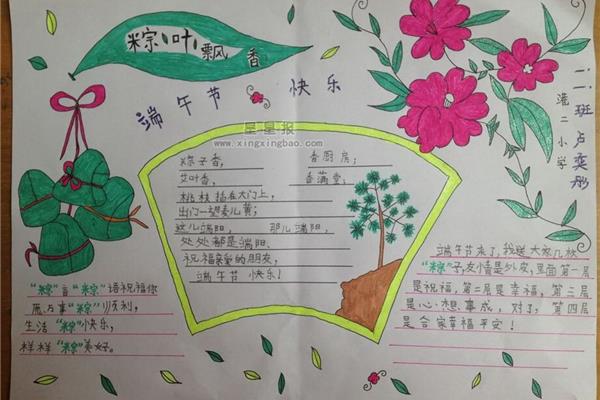 粽叶飘香
端午节 快乐
星星报
www.xingxingbao.com
港二小学
二、二班 卢奕彤
粽子香, 香厨房;
艾叶香, 香满堂;
桃枝插在大门上,
出门一望麦儿黄;
这儿端阳, 那儿端阳,
处处都是端阳.
祝福亲爱的朋友,
端午节 快乐!
"粽"言"粽"语祝福你
愿万事"粽"顺利,
生活"粽"快乐,
样样"粽"美好。
端午节来了,我送大家几枚
"粽"子,友情是外皮,里面第一层
是祝福,第二层是幸福,第三层
是心想事成,对了,第四层
是合家幸福平安!